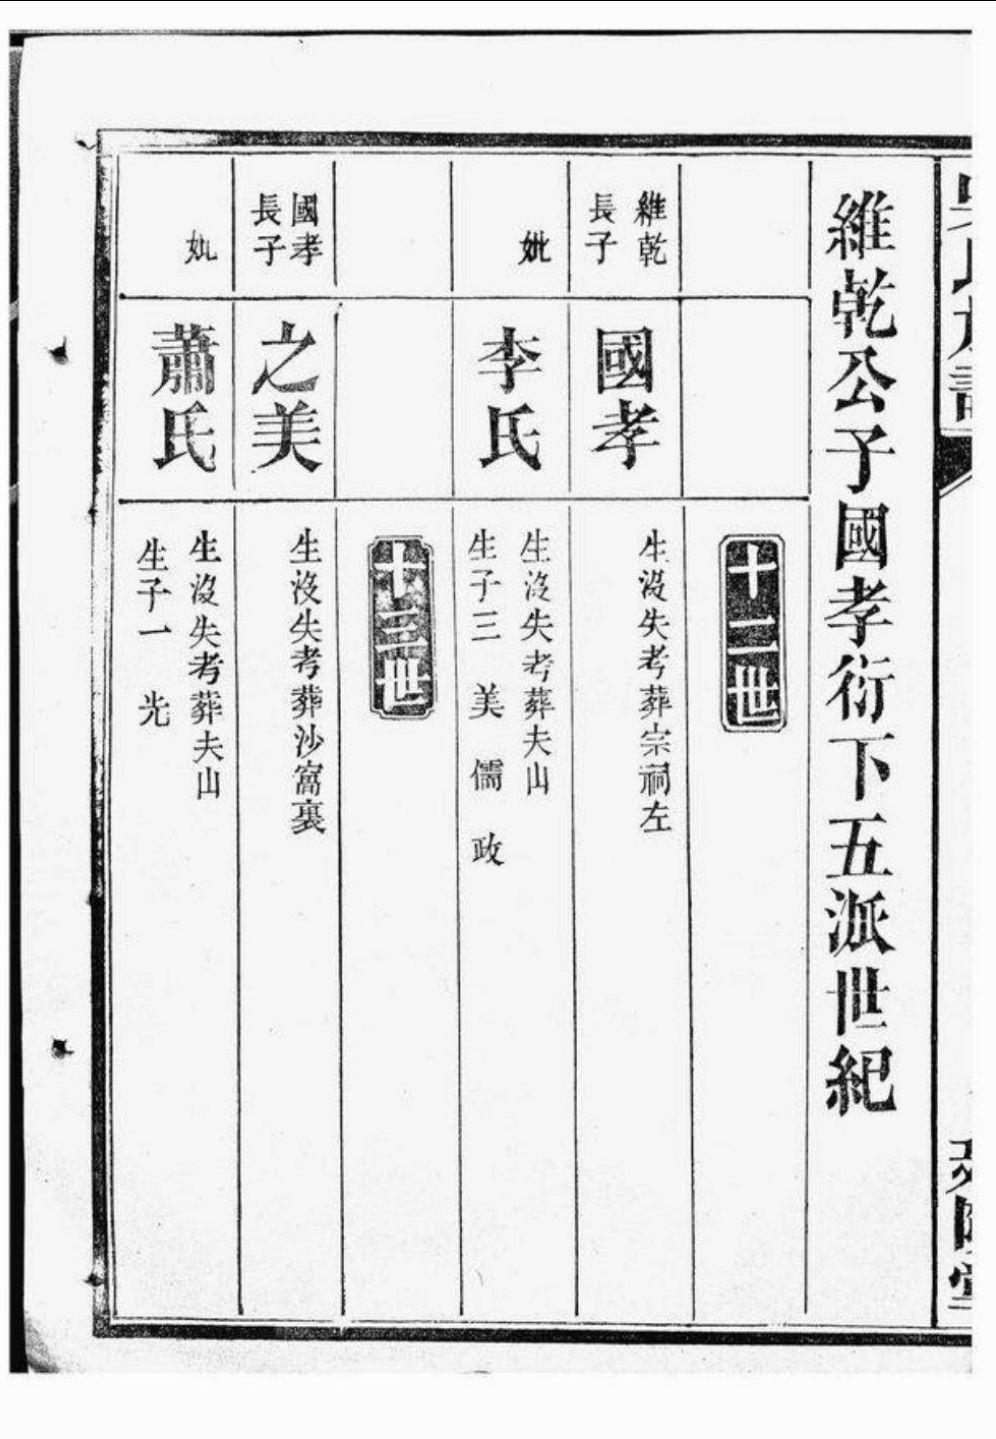 維乾公子國孝衍下五派世紀
十二世
維乾
長子
國孝
生沒失考葬宗祠左
妣
李氏
生沒失考葬夫山
生子三 美 儒 政
十三世
國孝
長子
之美
生沒失考葬沙窩裏
妣
蕭氏
生沒失考葬夫山
生子一 光